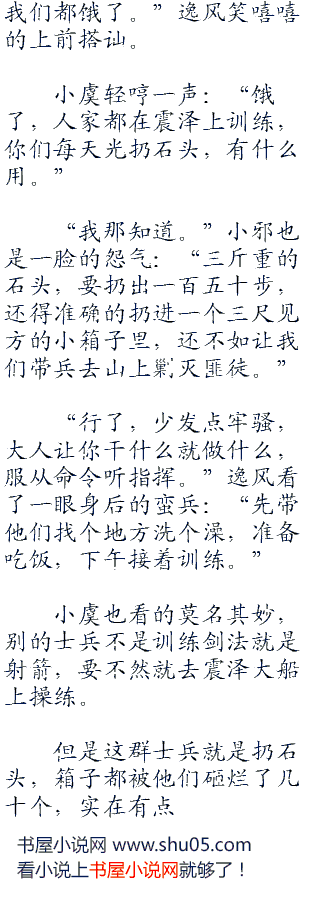 我们都饿了。”逸风笑嘻嘻
的上前搭讪。
小虞轻哼一声：“饿
了，人家都在震泽上训练，
你们每天光扔石头，有什么
用。”
“我那知道。”小邪也
是一脸的怨气：“三斤重的
石头，要扔出一百五十步，
还得准确的扔进一个三尺见
方的小箱子里，还不如让我
们带兵去山上剿灭匪徒。”
“行了，少发点牢骚，
大人让你干什么就做什么，
服从命令听指挥。”逸风看
了一眼身后的蛮兵：“先带
他们找个地方洗个澡，准备
吃饭，下午接着训练。”
小虞也看的莫名其妙，
别的士兵不是训练剑法就是
射箭，要不然就去震泽大船
上操练。
但是这群士兵就是扔石
头，箱子都被他们砸烂了几
十个，实在有点
书屋小说网 www.shu05.com
看小说上书屋小说网就够了！